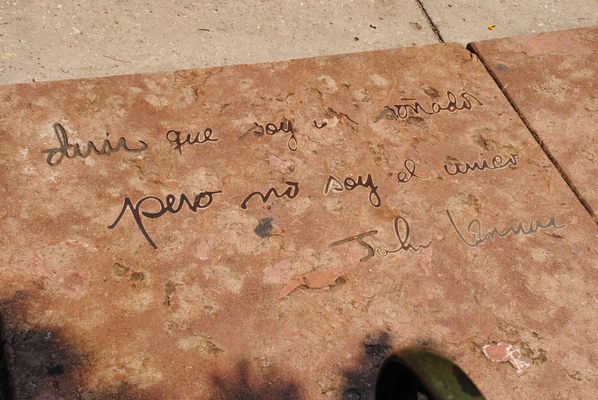 dirán que soy un soñador
pero no soy el único
John Lennon